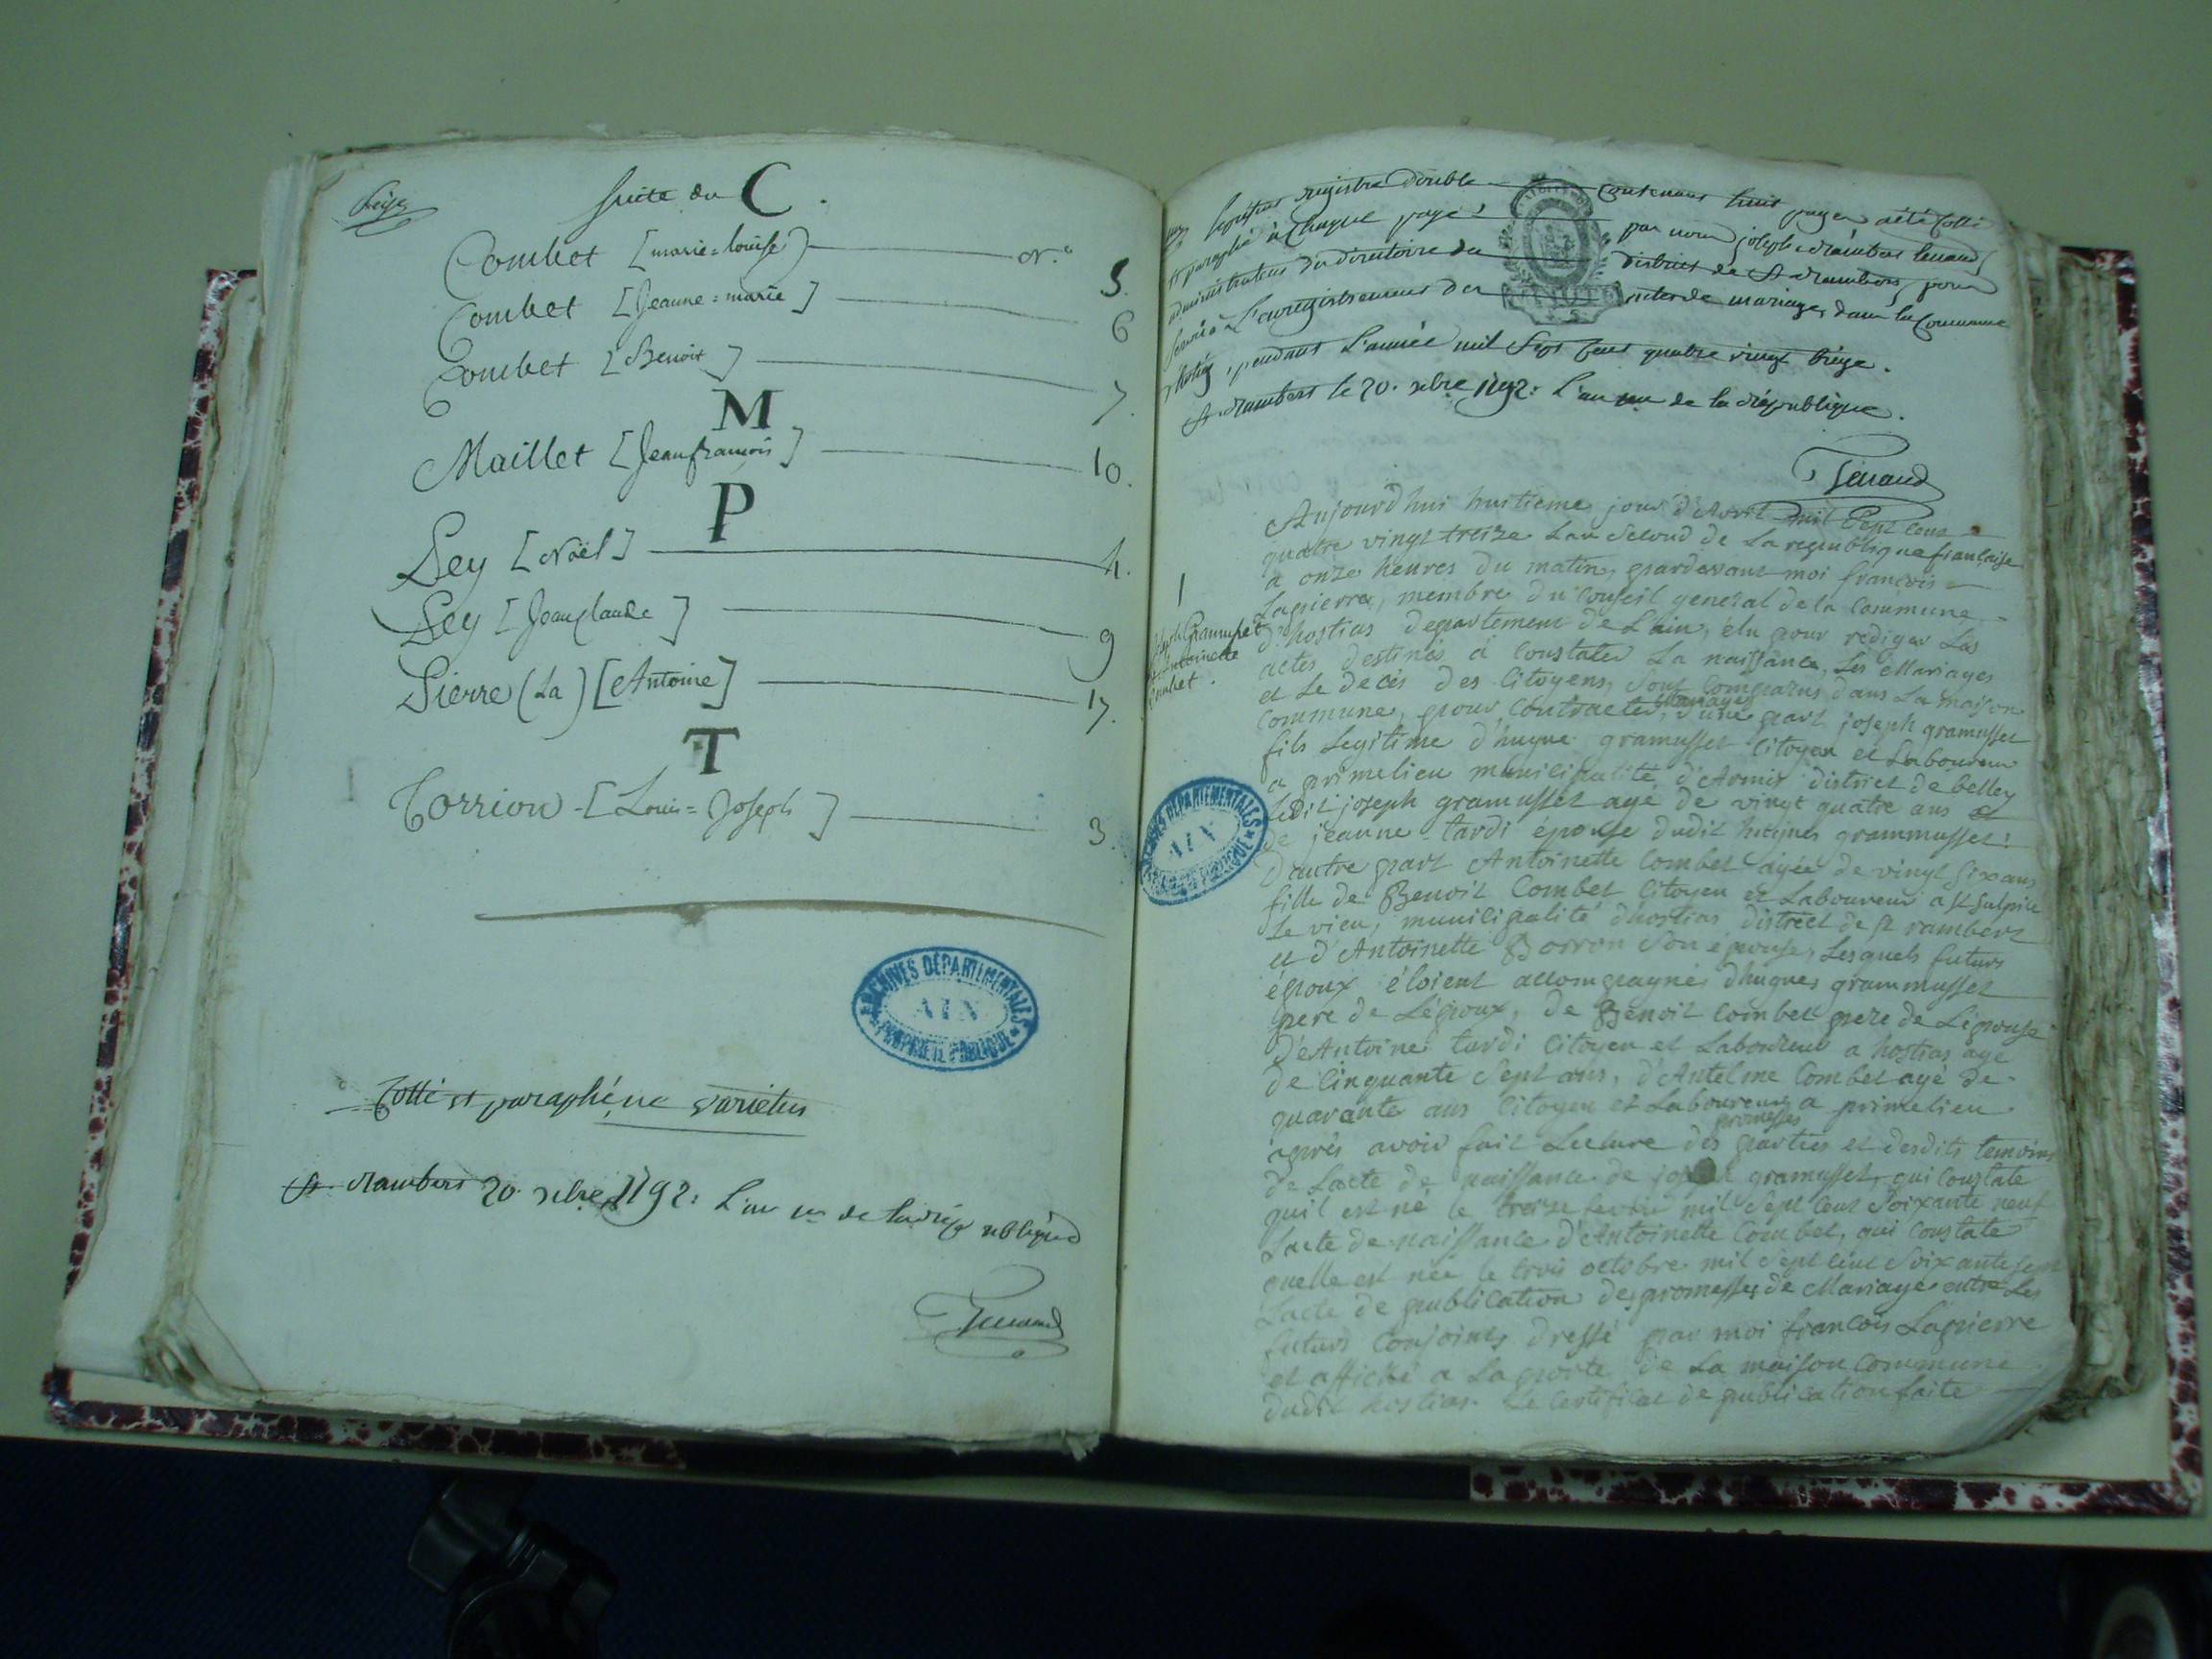 Suite du C.
Combet [marie=louise] n.° 5.
Combet [Jeanne=marie] 6
Combet [Benoit] 7.
M
Maillet [Jean françois] 10.
P
Pey [Noël] 4.
Pey [Jean Claude] 9
Pierre (La) [Antoine] 17.
T
Torrion - [Louis=Joseph] 3
ARCHIVES DÉPARTEMENTALES
AIN
PROPRIÉTÉ PUBLIQUE
Cotté et paraphé ne varietur
St rambert 20. xbre 1792: L'an 1er de la république
Tenand
registre double contenant huit pages a été Cotté
et paraphé à Chaque page par nous joseph rambert tenand
administrateur du directoire du district de St rambert, pour
servir à L'enregistrement des actes de mariages dans la Commune
d'hostiaz, pendant L'année mil Sept Cent quatre vingt treize.
St rambert le 20. xbre 1792: L'an 1er de la république.
Tenand
1
Joseph Grammusset
Antoinette
Combet.
ARCHIVES DÉPARTEMENTALES
AIN
PROPRIÉTÉ PUBLIQUE
Aujourd'hui huitieme jour d'Avril mil Sept Cent
quatre vingt treize Lan Second de La republique française
a onze heures du matin, pardevant moi françois
Lapierre, membre du Conseil general de la Commune
d'hostias departement de L'ain, élu pour rediger Les
actes destinés à Constater La naissance, Les Mariages
et Le decès des Citoyens, Sont Comparus dans La maison
Commune, pour Contracter Mariage, d'une part joseph gramusset
fils Legitime d'hugue gramusset Citoyen et Laboureur
a primelieu municipalité d'Armix district de belley
Ledit joseph gramusset agé de vingt quatre ans et
de jeanne tardi épouse dudit hugues grammusset:
D'autre part Antoinette Combet agée de vingt six ans
fille de Benoit Combet Citoyen et Laboureur a St Sulpice
Le vieu, municipalité d'hostias district de St rambert
et d'Antoinette Borron Son epouse, Lesquels futurs
époux étoient accompagnés d'hugues grammusset
pere de L'époux, de Benoit Combet pere de L'epouse
d'Antoine tardi Citoyen et Laboureur a hostias agé
de Cinquante Sept ans, d'Antelme Combet agé de
quarante ans Citoyen et Laboureur a primelieu
après avoir fait Lecture des promesses parties et desdits temoins
de L'acte de naissance de joseph gramusset, qui Constate
quil est né le treize fevrier mil Sept Cent Soixante neuf
L'acte de naissance d'Antoinette Combet, qui Constate
quelle est née le trois octobre mil Sept Cent Soixante sept
L'acte de publication des promesses de Mariage entre Les
futurs Conjoints dressé par moi françois Lapierre
et affiché a La porte de La maison Commune
dudit hostias. Le Certificat de publication faite